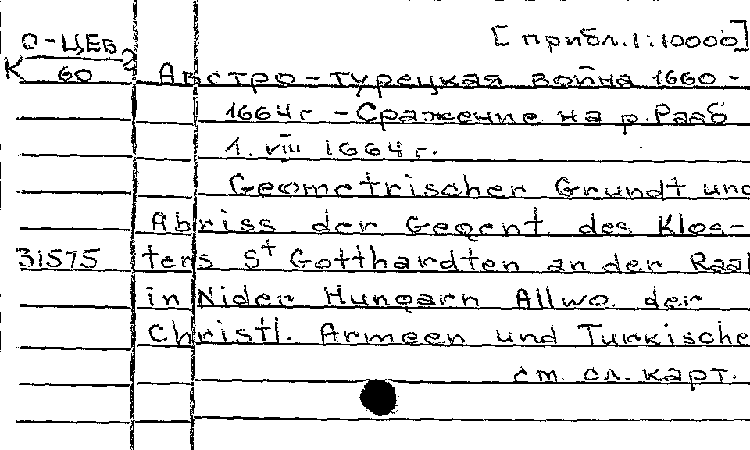 [прибл. 1:10000]
О-ЦЕВ₂
К 60
Австро-турецкая война 1660-
1664 г - Сражение на р. Рааб
1. VIII 1664 г.
Geometrischer Grundt und
Abriss der Gegent des Kloa-
31575 ters St Gotthardten an der Raab
in Nider Hungarn Allwo der
Christl. Armeen und Turkische
см. сл. карт.